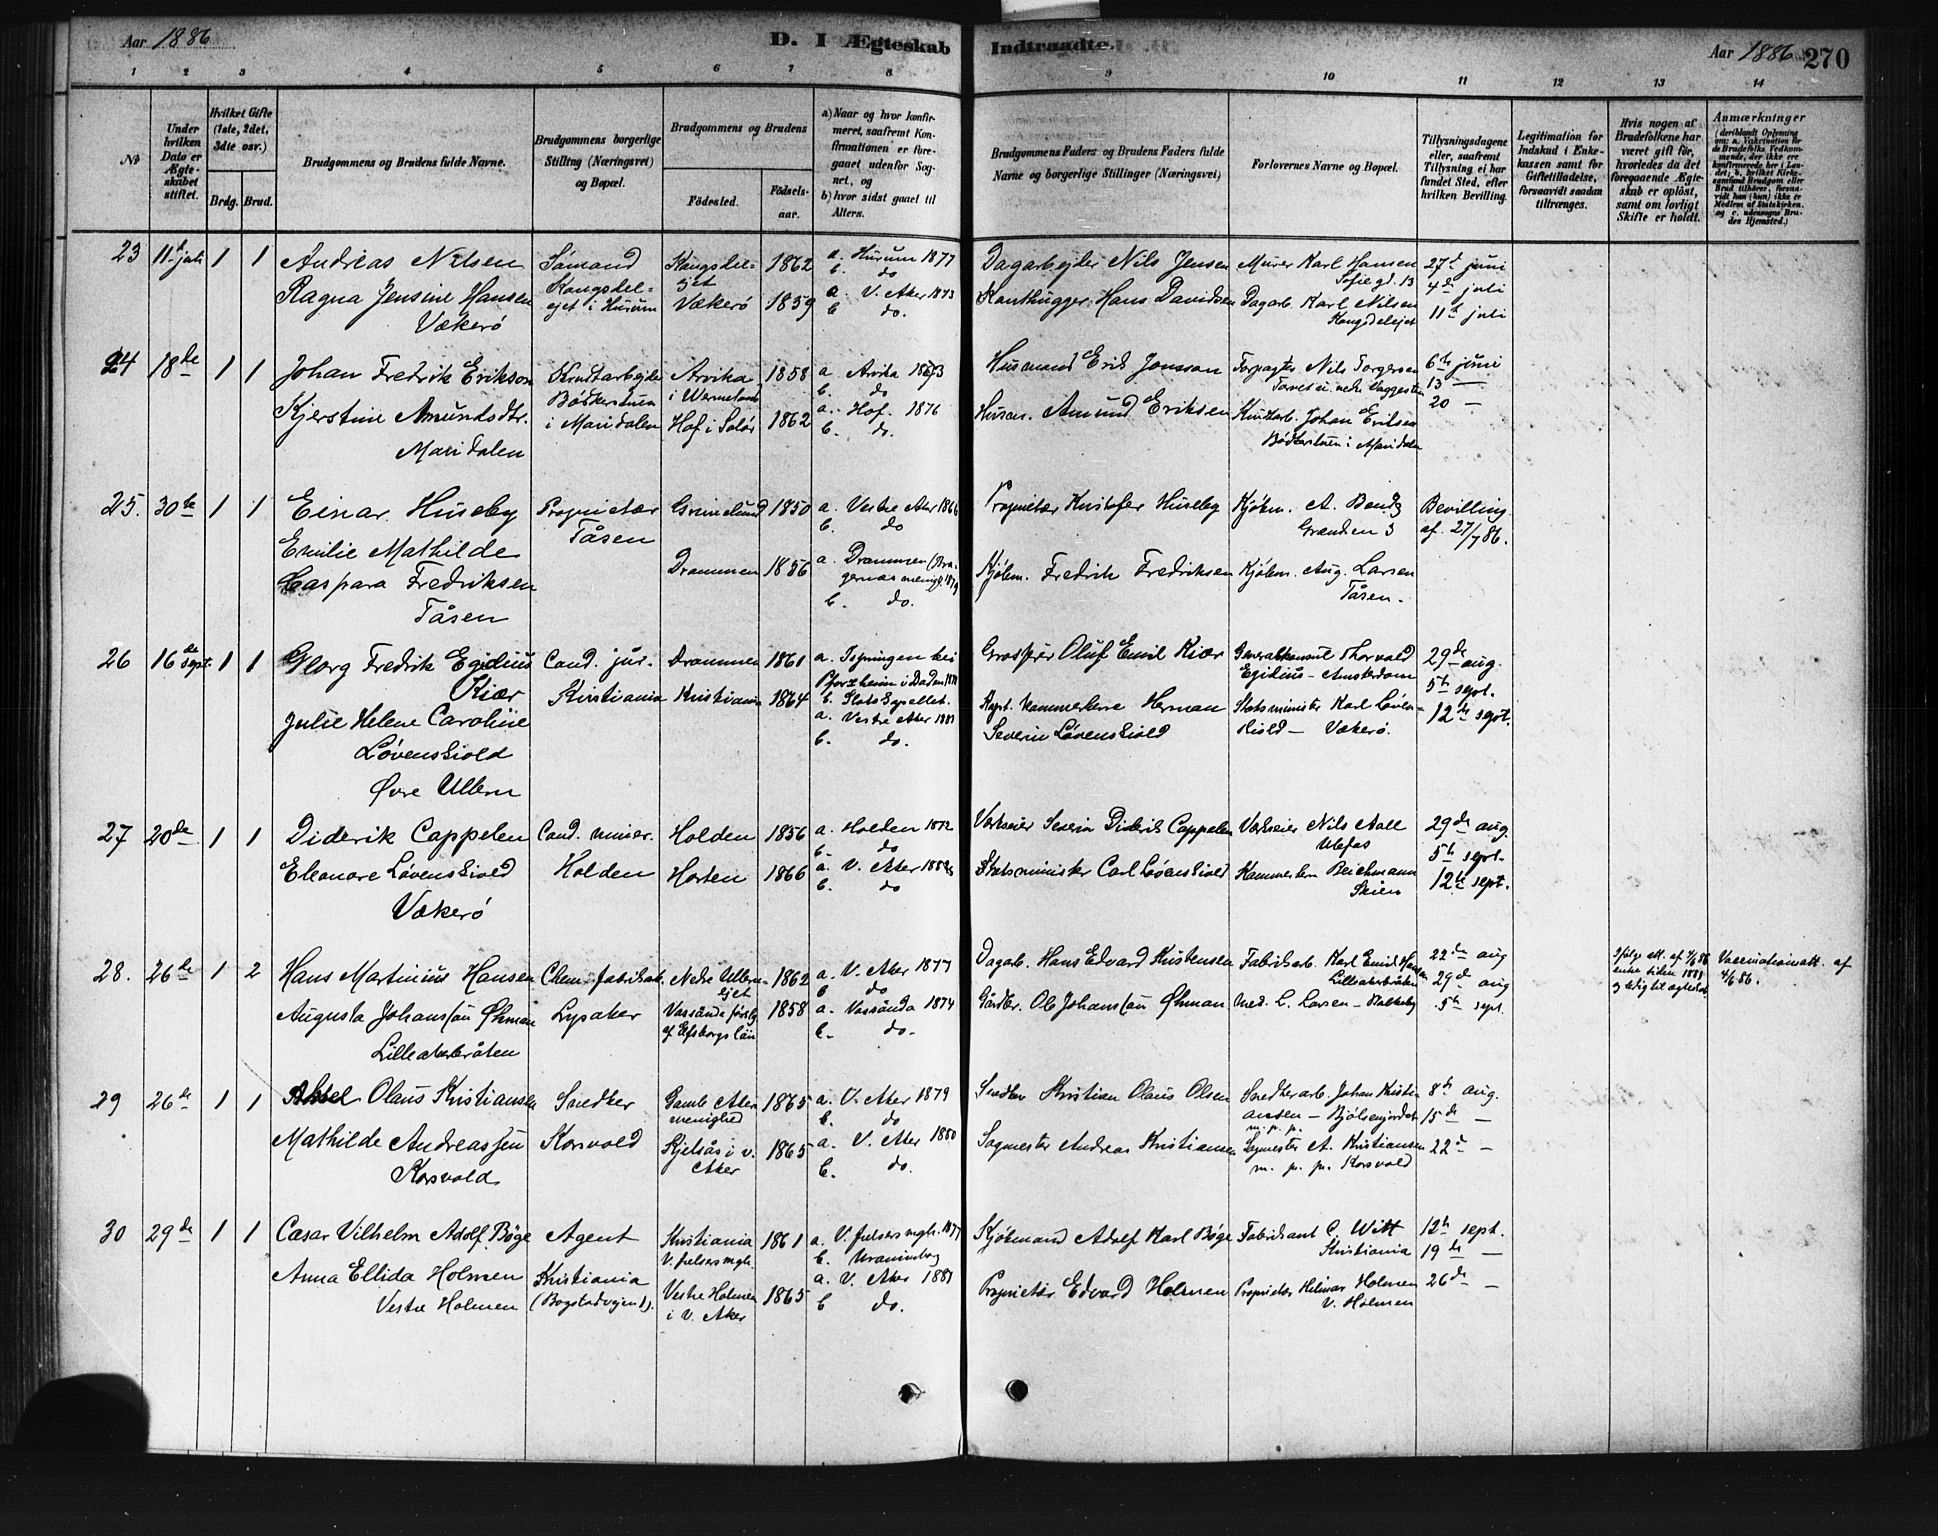 Aar 1886
D. I Ægteskab Indtraadte.
Aar 1886 270
1 2 3 4 5 6 7 8 9 10 11 12 13 14
No
Under hvilken Dato er Ægteskabet stiftet.
Hvilket Gifte (1ste, 2det, 3die osv.)
Brdg. Brud.
Brudgommens og Brudens fulde Navne.
Brudgommens borgerlige Stilling (Næringsvei) og Bopæl.
Brudgommens og Brudens
Fødested.
Fødselsaar.
a) Naar og hvor konfirmeret, saafremt Konfirmationen er foregaaet udenfor Sognet, og
b) hvor sidst gaaet til Alters.
Brudgommens Faders og Brudens Faders fulde Navne og borgerlige Stillinger (Næringsvei)
Forlovernes Navne og Bopæl.
Tillysningsdagene eller, saafremt Tillysning ei har fundet Sted, efter hvilken Bevilling.
Legitimation for Indskud i Enkekassen samt for Giftetilladelse, forsaavidt saadan tiltrænges.
Hvis nogen af Brudefolkene har været gift før, hvorledes da det foregaaende Ægteskab er opløst, samt om lovligt Skifte er holdt.
Anmærkninger
23 11te juli 1 1
Andreas Nilsen
Ragna Jensine Hansen
Vækerø
Sømand
Kongsdelejet i Hurum
Kongsdelejet 1862
Vækerø 1859
a. Hurum 1877
b. do
a. V. Aker 1873
b. do.
Dagarbejder Nils Jensen
Kanthugger Hans Davidsen
Murer Karl Hansen
Sofie gd. 13
Dagarb. Karl Nilsen
Kongsdelejet
27de juni
4de juli
11te juli
24 18de 1 1
Johan Fredrik Erikson
Kjerstine Amundsdtr.
Maridalen
Krudtarbejder
i Maridalen
Arvika i Wermeland 1858
Hof i Solør 1862
a. Arvika 1873
b. do
a. Hof. 1876
b. do.
Husmand Erik Jonsson
Husm. Amund Eriksen
Forpagter Nils Torgersen
Krudtarb. Johan Eriksen
i Maridalen
6te juni
13 —
20 —
25. 30te 1 1
Einar Huseby
Emilie Mathilde
Caspara Fredriksen
Tåsen
Proprietær
Tåsen
Grimelund 1850
Drammen 1856
a. Vestre Aker 1866
b. do
a. Drammen (Bragernæs menigh.
b. do.
Proprietær Kristofer Huseby
Kjøbm. Fredrik Fredriksen
Kjøbm. A. Bendz
Grændsen 3
Kjøbm. Aug. Larsen
Tåsen.
Bevilling
af 27/7 86.
26 16de sept. 1 1
Georg Fredrik Egidius
Kiær
Julie Helene Caroline
Løvenskiold
Øvre Ullern
Cand. jur.
Kristiania
Drammen 1861
Kristiania 1864
a. Ispringen bei
Pforzheim i Baden
b. Slotskapellet.
a. Vestre Aker 1881
b. do.
Grosserer Oluf Emil Kiær
Kapt. Kammerherre Herman
Severin Løvenskiold
Generalkonsul Thorvald
Egidius — Amsterdam
Statsminister Karl Løvenskiold — Vækerø.
29de aug.
5te sept.
12te sept.
27 20de 1 1
Diderik Cappelen
Eleonore Løvenskiold
Vækerø
Cand. miner.
Holden
Holden 1856
Horten 1866
a. Holden 1872
b. do
a. V. Aker
b. do
Værkseier Severin Diderik Cappelen
Statsminister Carl Løvenskiold
Værkseier Nils Aall
Ulefos
Kammerherre Beichmann
Skien
29de aug.
5te sept.
12te sept.
28. 26de 1 2
Hans Martinius Hansen
Augusta Johansson Öhman
Lilleakerbråten
Chem. fabrikarb.
Lysaker
Nedre Ullernejet 1862
Vassända
af Elfsborgs län 1858
a. V. Aker 1877
b. do
a. Vassända 1874
b. do.
Dagarb. Hans Edvard Kristensen
Gårdbr. Ole Johansson Öhman
Fabrikarb. Karl Emil Hansen
Lilleakerbråten
Med. L. Larsen —
22de aug
29de aug
5te sept.
Vaccinationsatt. af
4/6 86.
29 26de 1 1
Aksel Olaus Kristiansen
Mathilde Andreassen
Korsvold
Snedker
Korsvold
Gamle Aker
menighed 1865
Kjelsås i v.
Aker 1865
a. V. Aker 1879
b. do
a. V. Aker 1880
b. do.
Snedker Kristian Olaus Olsen
Sagmester Andreas Kristiansen
Snedkerarb. Johan Kristiansen — Bjølsenjordet
m. p. p.
Sagmester A. Kristiansen
m. p. p. Korsvold
8de aug.
15de —
22de —
30 29de 1 1
Cæsar Vilhelm Adolf Bøge
Anna Ellida Holmen
Vestre Holmen
Agent
Kristiania
(Bogstadvejen 1).
Kristiania
V. frelsers mgh. 1861
Vestre Holmen
i V. Aker 1865
a. V. frelsers mgh. 1877
b. Uranienborg
a. V. Aker 1881
b. do.
Kjøbmand Adolf Karl Bøge
Proprietær Edvard Holmen
Fabrikant C. Witt
Kristiania
Proprietær Hilmar Holmen
V. Holmen
12te sept.
19de —
26de —